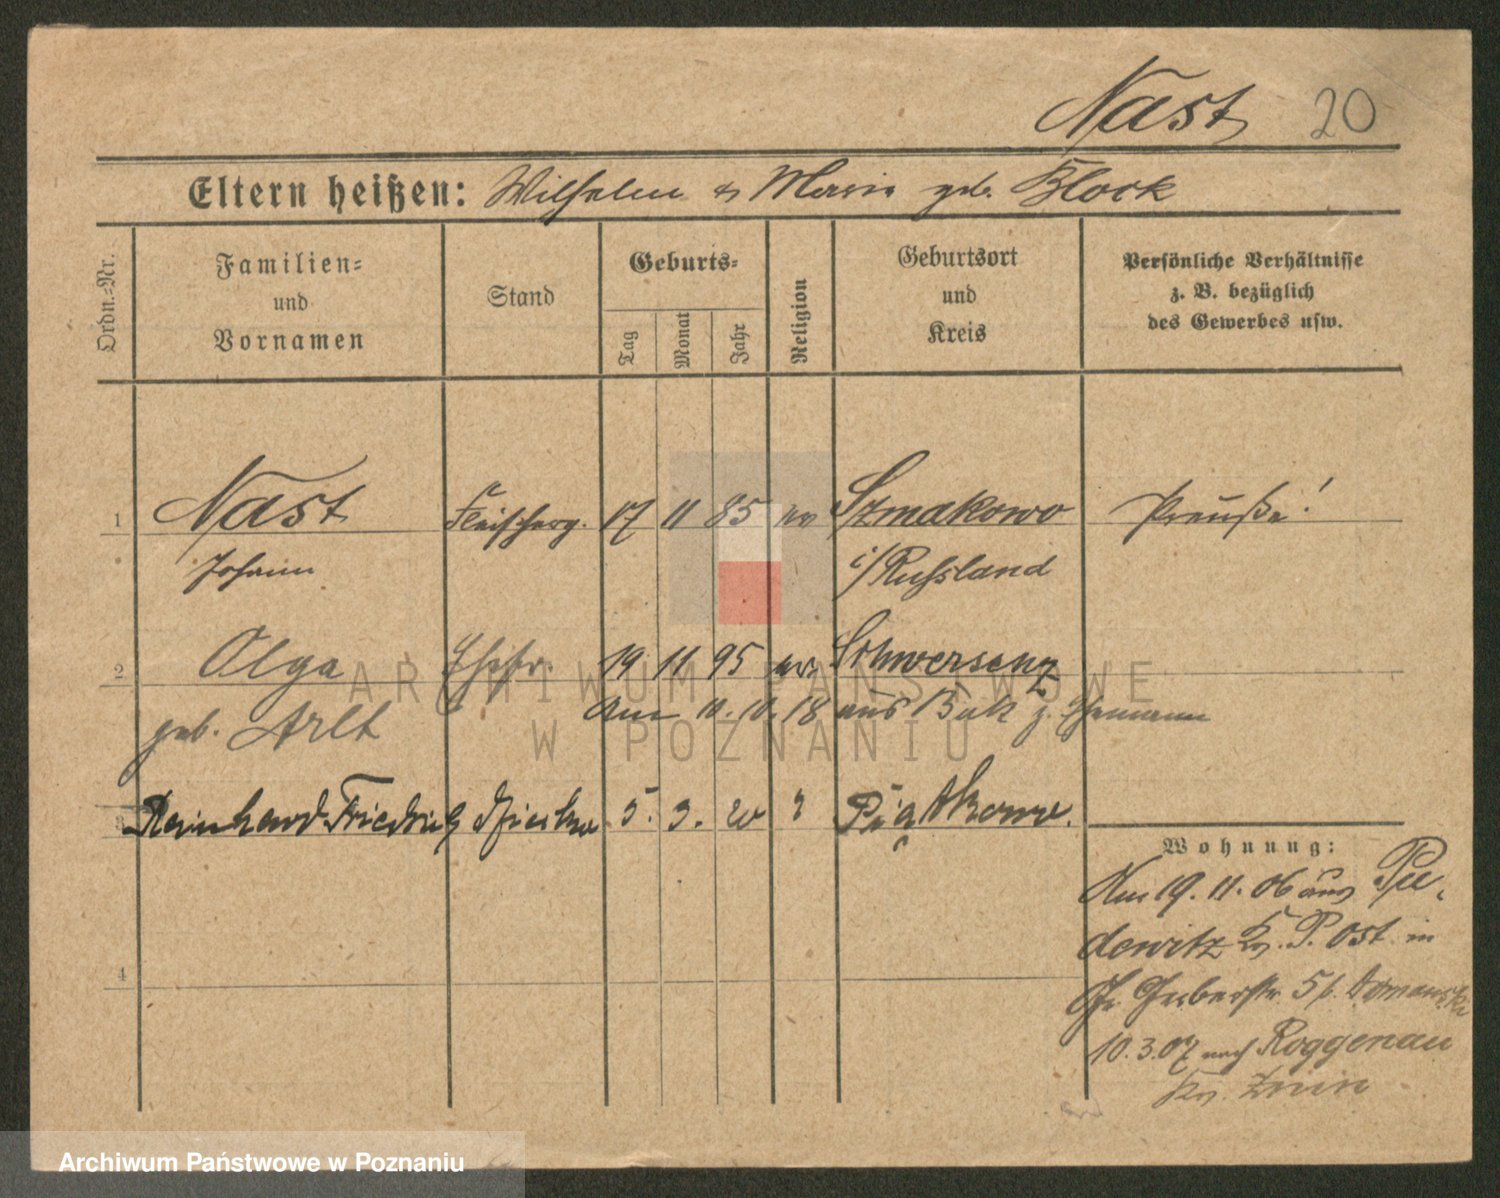 Nast 20
Eltern heißen: Wilhelm & Maria geb. Block
Ordn.-Nr.
Familien-
und
Vornamen
Stand
Geburts-
Tag
Monat
Jahr
Religion
Geburtsort
und
Kreis
Persönliche Verhältnisse
z. B. bezüglich
des Gewerbes usw.
1 Nast Fleischerg. 17 11 85 ev Szmakowo Preuße!
Johann i/Russland
2 Olga Ehefr. 19 11 95 ev. Schwersenz
geb. Arlt Am 10.10.18 aus Buk z. Ehemann
3 Reinhard Friedrich 5. 3. 20 Piątkowo.
4
Wohnung:
Am 19.11.06 aus Pu-
dewitz Kr. P. Ost in
Gr. Gerberstr 5 b.
10.3.07 nach Roggenau
Kr. Znin
ARCHIWUM PAŃSTWOWE
W POZNANIU
Archiwum Państwowe w Poznaniu